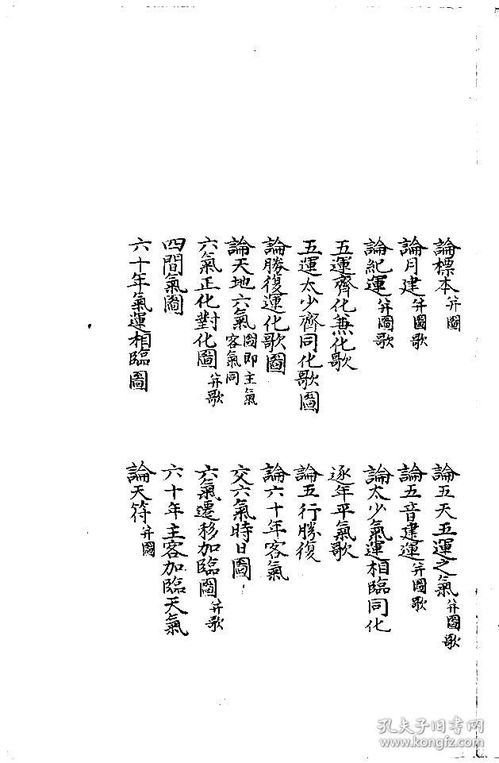 論標本并圖
論五天五運之氣并圖歌
論月建并圖歌
論五音建運并圖歌
論紀運并圖歌
論太少氣運相臨同化
五運齊化兼化歌
逐年平氣歌
五運太少齊同化歌圖
論五行勝復
論勝復運化歌圖
論六十年客氣
論天地六氣圖即主氣客氣同
交六氣時日圖
六氣正化對化圖并歌
六氣遷移加臨圖并歌
四間氣圖
六十年主客加臨天氣
六十年氣運相臨圖
論天符并圖
孔夫子旧书网
www.kongfz.com